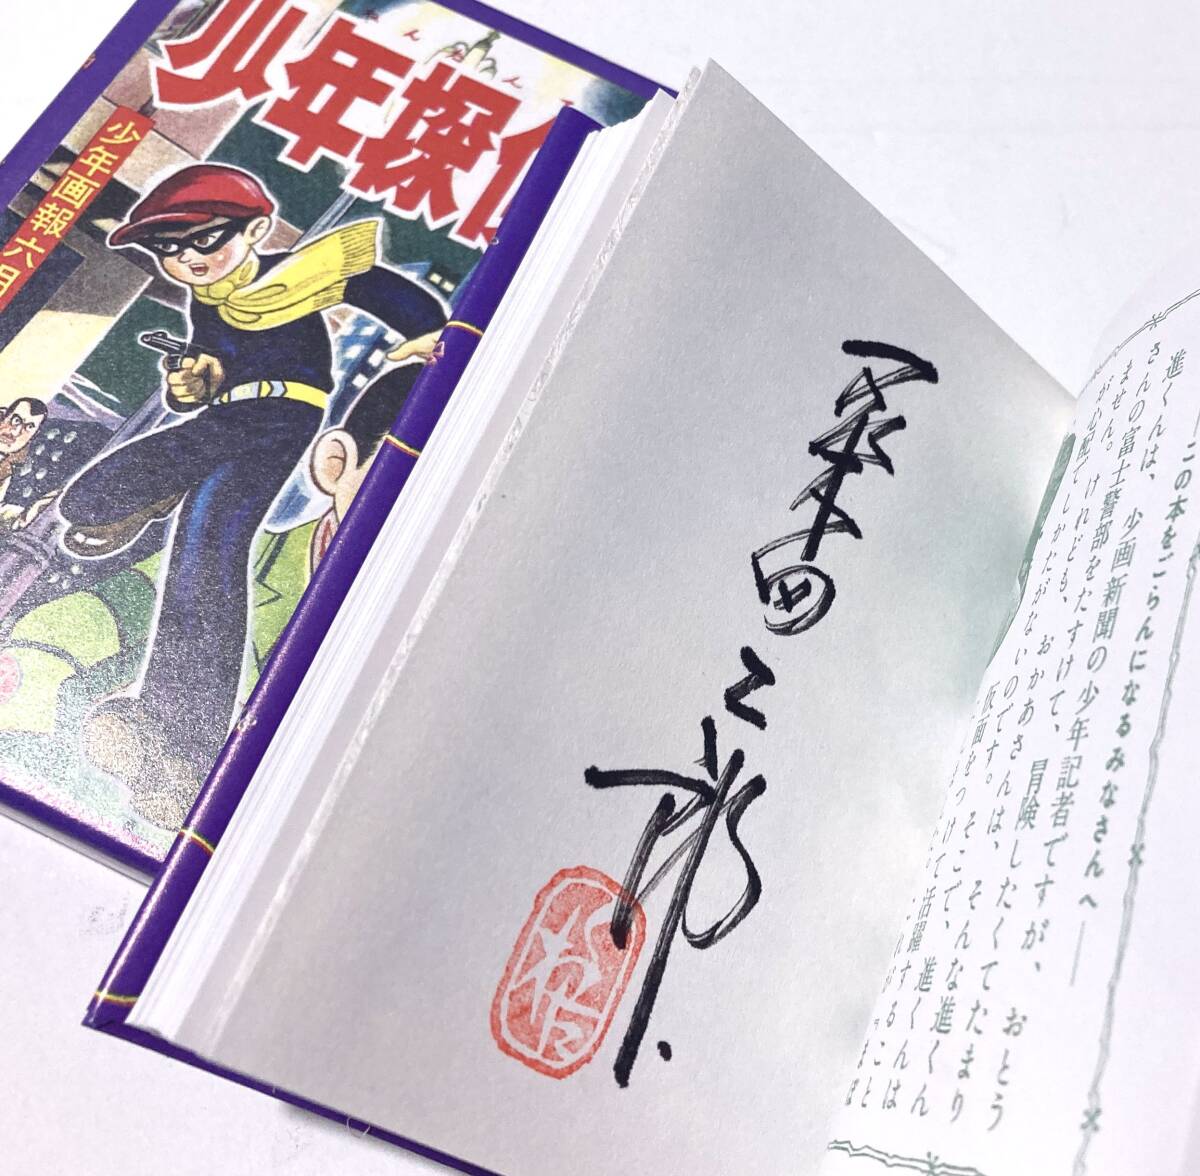 少年探
少年画報六月
桑田二郎
この本をごらんになるみなさんへ――
進くんは、少画新聞の少年記者ですが、おとう
さんの富士警部をたすけて、冒険したくてたまり
ません。けれども、おかあさんは、そんな進くん
が心配でしかたがないのです。そこで、進くんは
仮面をつけて活躍する